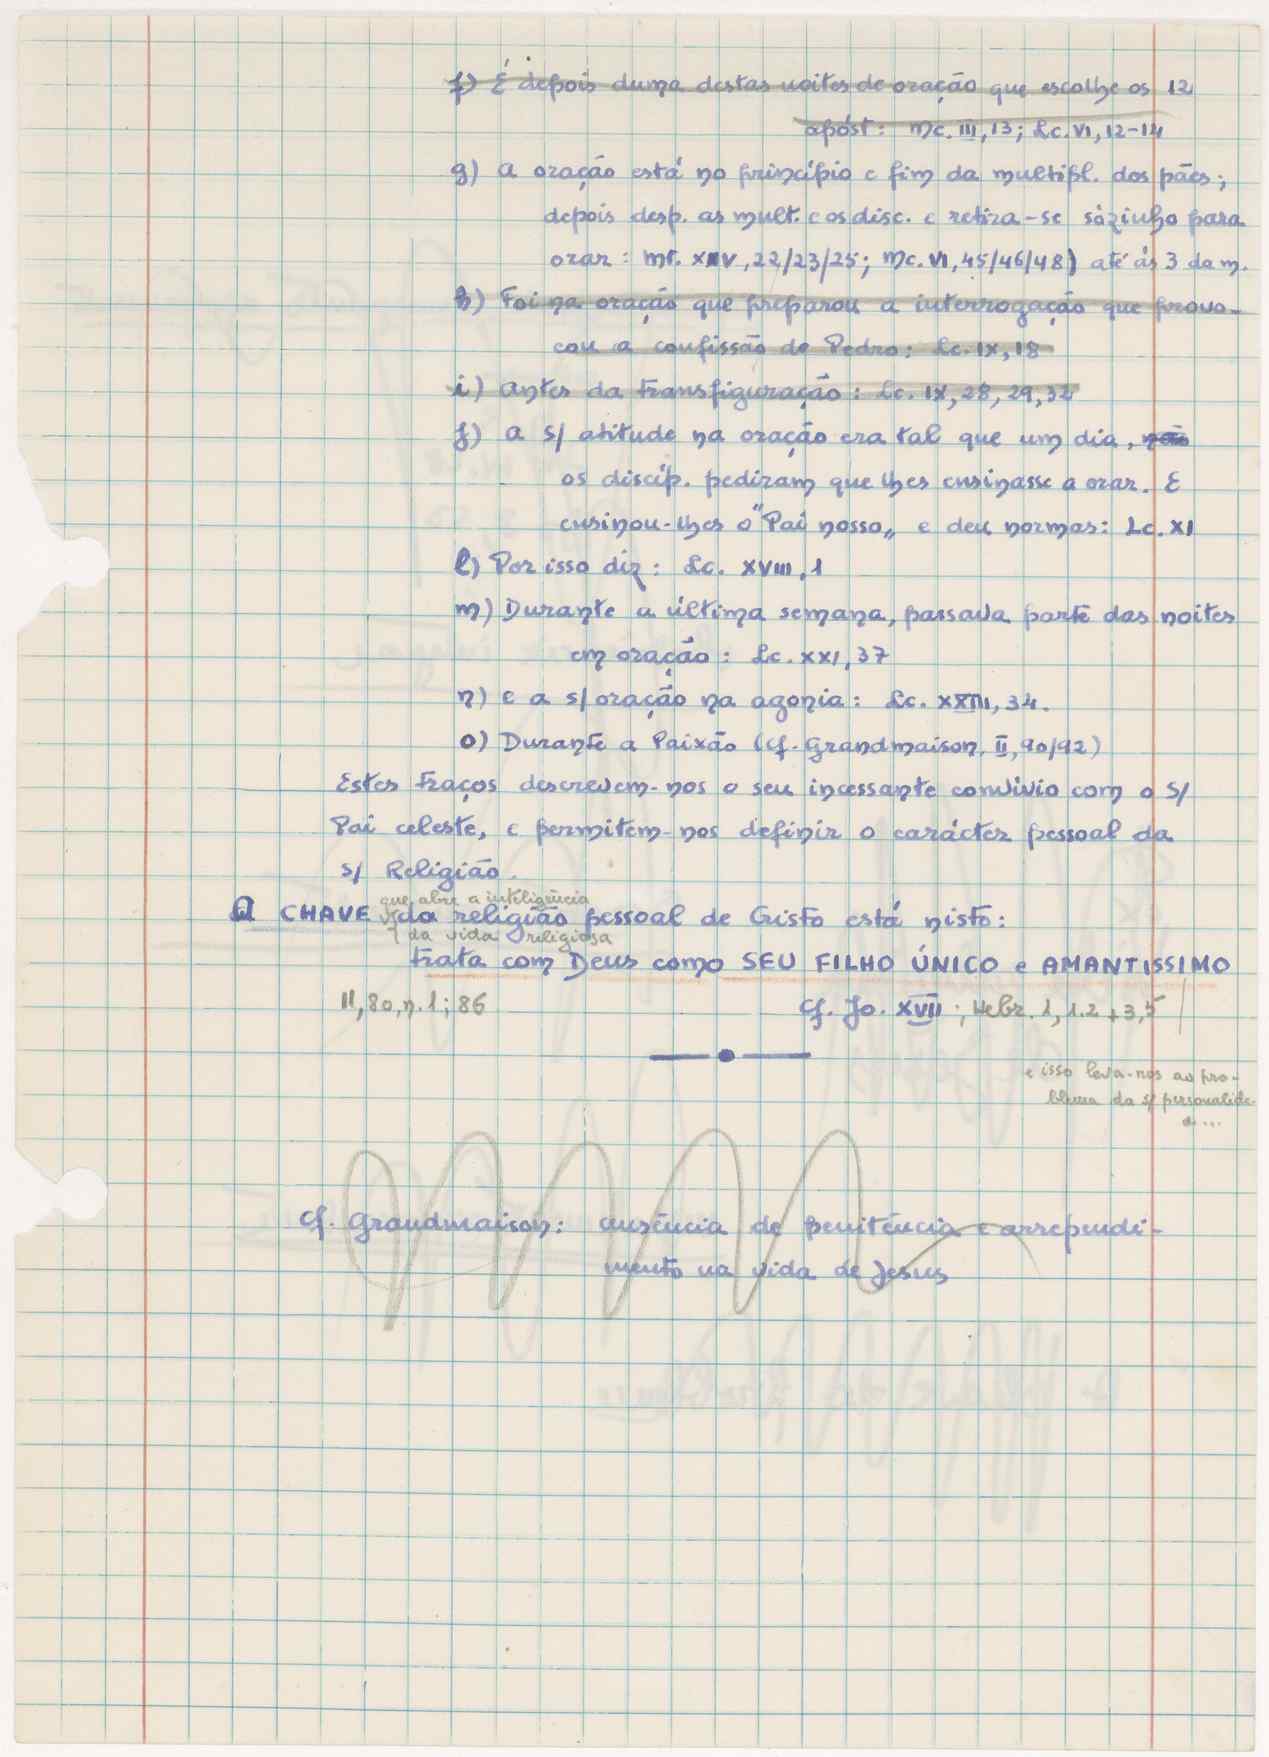 f) É depois duma destas noites de oração que escolhe os 12
apóst: Mc. III, 13; Lc. VI, 12-14
g) A oração está no princípio e fim da multipl. dos pães;
depois desp. as mult. e os disc. e retira-se sòzinho para
orar: Mt. XIV, 22/23/25; Mc. VI, 45/46/48) até às 3 da m.
h) Foi na oração que preparou a interrogação que provo-
cou a confissão de Pedro: Lc. IX, 18
i) Antes da transfiguração: Lc. IX, 28, 29, 32
j) A s/ atitude na oração era tal que um dia, não
os discíp. pediram que lhes ensinasse a orar. E
ensinou-lhes o "Pai nosso„ e deu normas: Lc. XI
l) Por isso diz: Lc. XVIII, 1
m) Durante a última semana, passava parte das noites
em oração: Lc. XXI, 37
n) e a s/ oração na agonia: Lc. XXIII, 34.
o) Durante a Paixão (cf. Grandmaison, II, 90/92)
Estes traços descrevem-nos o seu incessante convívio com o s/
Pai celeste, e permitem-nos definir o carácter pessoal da
s/ Religião.
que abre a inteligência
A CHAVE da religião pessoal de Cristo está nisto:
da vida religiosa
trata com Deus como SEU FILHO ÚNICO e AMANTISSIMO
II, 80, n. 1; 86 cf. Jo. XVII; Hebr. 1, 1.2 + 3,5
e isso leva-nos ao pro-
blema da s/ personalida-
de...
cf. Grandmaison: ausência de penitência e arrependi-
mento na vida de Jesus